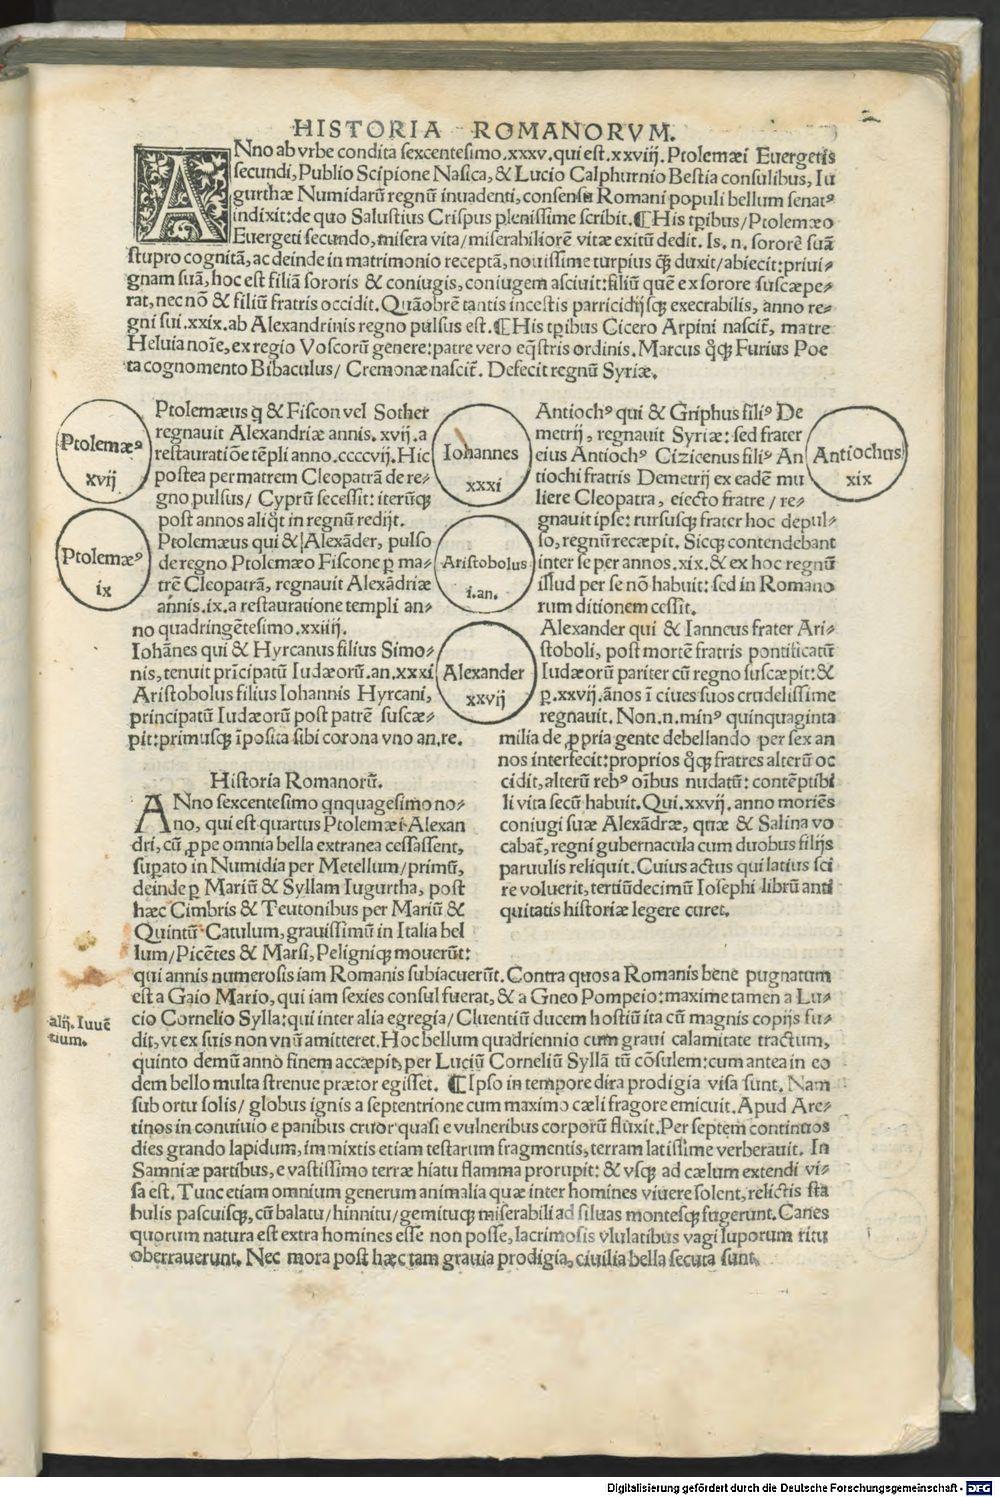 HISTORIA ROMANORVM.
ANno ab vrbe condita sexcentesimo.xxxv.qui est.xxviij. Ptolemæi Euergetis
secundi, Publio Scipione Nasica, & Lucio Calphurnio Bestia consulibus, Iu
gurthæ Numidarū regnū inuadenti, consensu Romani populi bellum senatꝰ
indixit: de quo Salustius Crispus plenissime scribit. ¶ His tꝑibus/ Ptolemæo
Euergeti secundo, misera vita/ miserabiliorē vitæ exitū dedit. Is. n. sororē suā
stupro cognitā, ac deinde in matrimonio receptā, nouissime turpius q̃ꝫ duxit/ abiecit: priui⸗
gnam suā, hoc est filiā sororis & coniugis, coniugem asciuit: filiū quē ex sorore suscæpe⸗
rat, nec nō & filiū fratris occidit. Quāobrē tantis incestis parricidijsqꝫ execrabilis, anno re⸗
gni sui .xxix. ab Alexandrinis regno pulsus est. ¶ His tꝑibus Cicero Arpini nascit̃, matre
Heluia noīe, ex regio Voscorū genere: patre vero eq̃stris ordinis. Marcus q̊qꝫ Furius Poe
ta cognomento Bibaculus/ Cremonæ nascit̃. Defecit regnū Syriæ.
Ptolemæꝰ
xvij
Ptolemæus q & Fiscon vel Sother
regnauit Alexandriæ annis. xvij. a
restauratiōe tēpli anno. ccccvij. Hic
postea per matrem Cleopatrā de re⸗
gno pulsus/ Cyprū secessit: iterūqꝫ
post annos aliq̊t in regnū redijt.
Ptolemæꝰ
ix
Ptolemæus qui & Alexāder, pulso
de regno Ptolemæo Fiscone ꝑ ma⸗
trē Cleopatrā, regnauit Alexādriæ
annis. ix. a restauratione templi an⸗
no quadringētesimo. xxiiij.
Iohannes
xxxi
Iohānes qui & Hyrcanus filius Simo⸗
nis, tenuit prīcipatū Iudæorū. an. xxxi
Aristobolus
i. an.
Aristobolus filius Iohannis Hyrcani,
principatū Iudæorū post patrē suscæ⸗
pit: primusqꝫ īposita sibi corona vno an. re.
Antiochus
xix
Antiochꝰ qui & Griphus filiꝰ De
metrij, regnauit Syriæ: sed frater
eius Antiochꝰ Cizicenus filiꝰ An
tiochi fratris Demetrij ex eadē mu
liere Cleopatra, eiecto fratre / re⸗
gnauit ipse: rursusqꝫ frater hoc depul⸗
so, regnū recæpit. Sicqꝫ contendebant
inter se per annos. xix. & ex hoc regnū
illud per se nō habuit: sed in Romano
rum ditionem cessit.
Alexander
xxvij
Alexander qui & Ianneus frater Ari⸗
stoboli, post mortē fratris pontificatū
Iudæorū pariter cū regno suscæpit: &
ꝑ. xxvij. ānos ī ciues suos crudelissime
regnauit. Non. n. minꝰ quinquaginta
milia de ꝓpria gente debellando per sex an
nos interfecit: proprios q̊qꝫ fratres alterū oc
cidit, alterū rebꝰ oībus nudatū: contēptibi
li vita secū habuit. Qui. xxvij. anno moriēs
coniugi suæ Alexādræ, quæ & Salina vo
cabat̃, regni gubernacula cum duobus filijs
paruulis reliquit. Cuius actus qui latius sci
re voluerit, tertiūdecimū Iosephi librū anti
quitatis historiæ legere curet.
Historia Romanorū.
ANno sexcentesimo qnquagesimo no⸗
no, qui est quartus Ptolemæi Alexan
dri, cū ꝓpe omnia bella extranea cessassent,
supato in Numidia per Metellum/ primū,
deinde ꝑ Mariū & Syllam Iugurtha, post
hæc Cimbris & Teutonibus per Mariū &
Quintū Catulum, grauissimū in Italia bel
lum/ Picētes & Marsi, Peligniqꝫ mouerūt:
qui annis numerosis iam Romanis subiacuerūt. Contra quos a Romanis bene pugnatum
est a Gaio Mario, qui iam sexies consul fuerat, & a Gneo Pompeio: maxime tamen a Lu⸗
cio Cornelio Sylla: qui inter alia egregia/ Cluentiū ducem hostiū ita cū magnis copijs fu⸗
alij. Iuuē
tium.
dit, vt ex suis non vnū amitteret. Hoc bellum quadriennio cum graui calamitate tractum,
quinto demū anno finem accæpit, per Luciū Corneliū Syllā tū cōsulem: cum antea in eo
dem bello multa strenue prætor egisset. ¶ Ipso in tempore dira prodigia visa sunt. Nam
sub ortu solis/ globus ignis a septentrione cum maximo cæli fragore emicuit. Apud Are⸗
tinos in conuiuio e panibus cruor quasi e vulneribus corporū fluxit. Per septem continuos
dies grando lapidum, immixtis etiam testarum fragmentis, terram latissime verberauit. In
Samniæ partibus, e vastissimo terræ hiatu flamma prorupit: & vsqꝫ ad cælum extendi vi⸗
sa est. Tunc etiam omnium generum animalia quæ inter homines viuere solent, relictis sta
bulis pascuisqꝫ, cū balatu/ hinnitu/ gemituqꝫ miserabili ad siluas montesqꝫ fugerunt. Canes
quorum natura est extra homines esse non posse, lacrimosis vlulatibus vagi luporum ritu
oberrauerunt. Nec mora post hæc tam grauia prodigia, ciuilia bella secuta sunt.
Digitalisierung gefördert durch die Deutsche Forschungsgemeinschaft - DFG